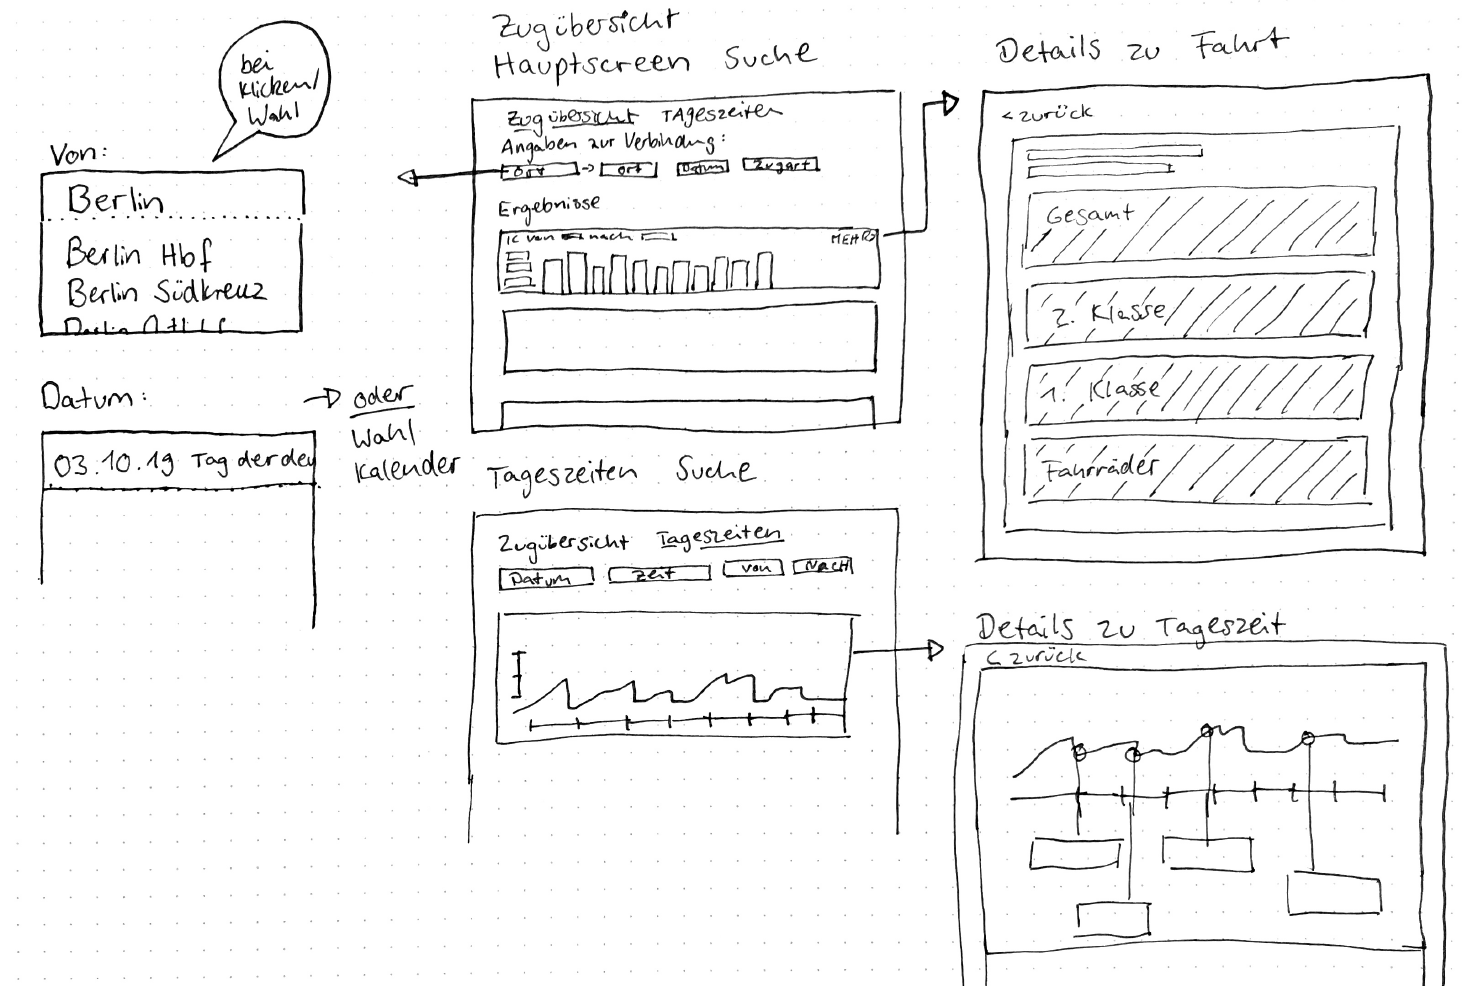 bei
Klicken/
Wahl
Von:
Berlin
Berlin Hbf
Berlin Südkreuz
Datum:
03.10.19 Tag der deu
oder
Wahl
Kalender
Zugübersicht
Hauptscreen Suche
Zugübersicht TAgeszeiten
Angaben zur Verbindung:
Ort -> ort Datum Zugart
Ergebnisse
IC von nach MEHR>
Tageszeiten Suche
Zugübersicht Tageszeiten
Datum Zeit von NACH
Details zu Fahrt
< zurück
Gesamt
2. Klasse
1. Klasse
Fahrräder
Details zu Tageszeit
< zurück